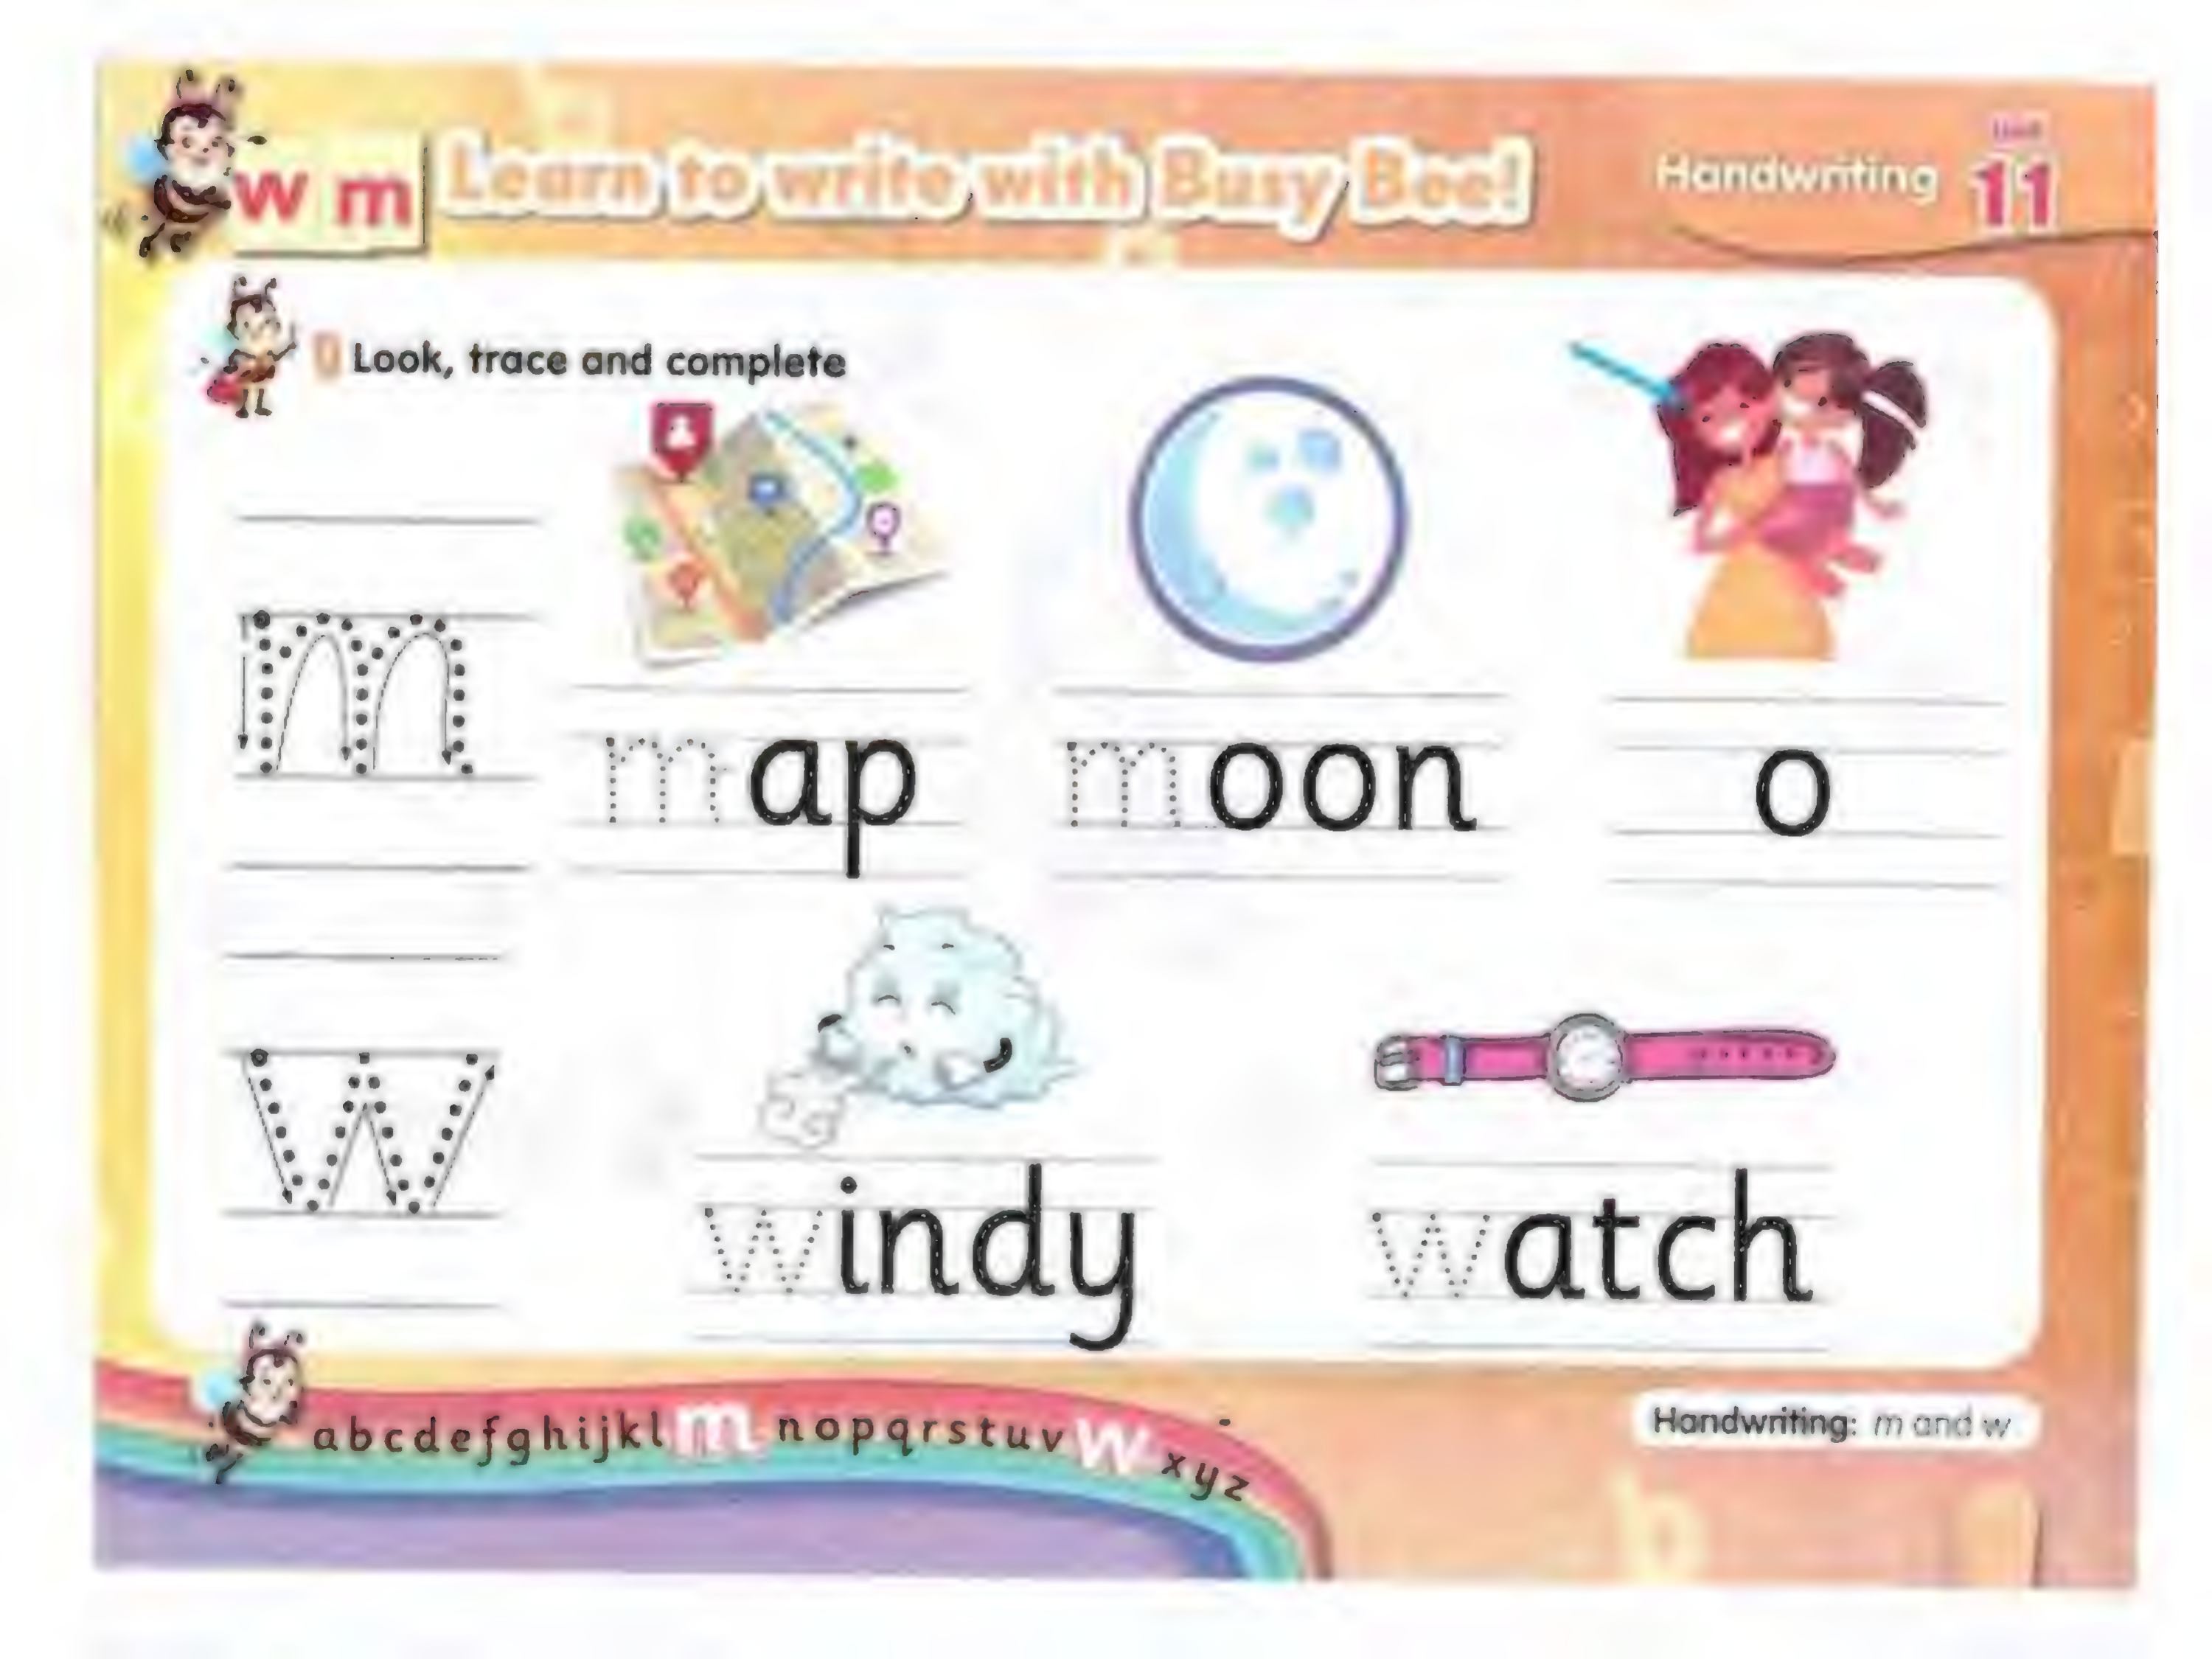 w m Learn to write with Busy Bee! Handwriting Unit 11
Look, trace and complete
m map moon o
w windy watch
abcdefghijklmnopqrstuvwxyz
Handwriting: m and w